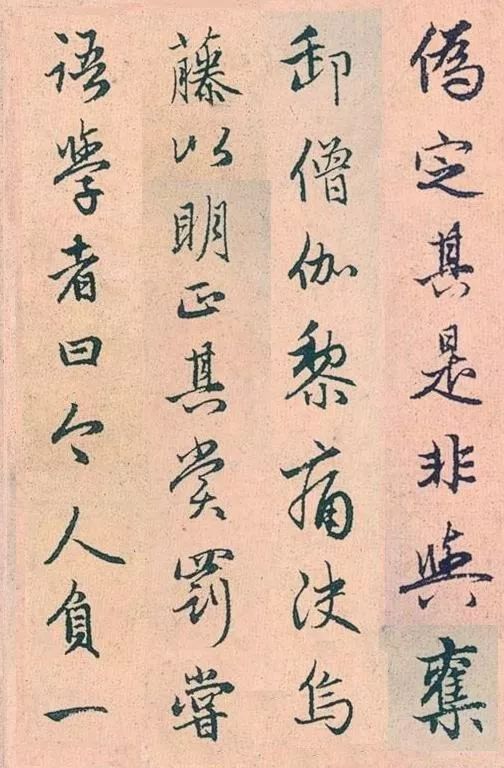 偽定其是非與奪
卸僧伽黎痛決烏
藤以明正其賞罰嘗
語學者曰今人負一